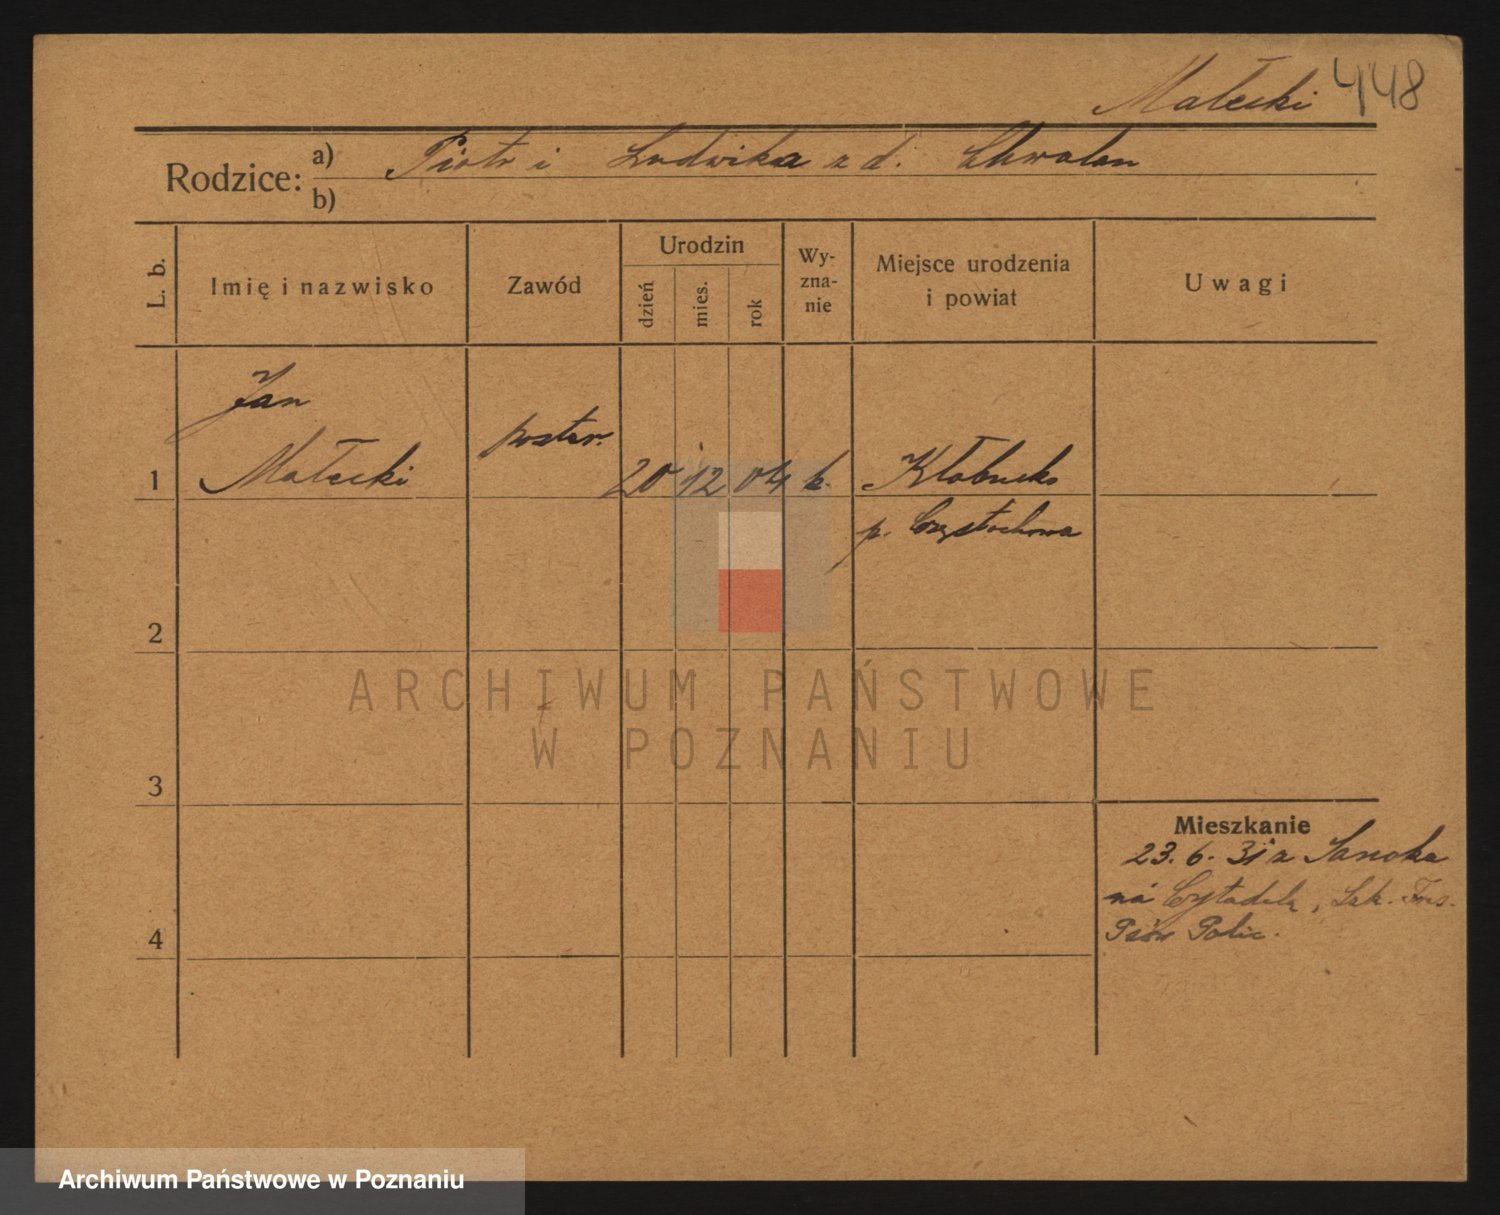 Małecki 448
Rodzice: a) Piotr i Ludwika z d. Chwalan
b)
L. b. Imię i nazwisko Zawód Urodzin dzień mies. rok Wyzna-nie Miejsce urodzenia i powiat Uwagi
Jan
1 Małecki poster. 20 12 04 k. Kłobucko
p. Częstochowa
2
ARCHIWUM PAŃSTWOWE
W POZNANIU
3
Mieszkanie
23. 6. 31 z Sanoka
na Cytadelę, Szk.
4 Psów Polic.
Archiwum Państwowe w Poznaniu